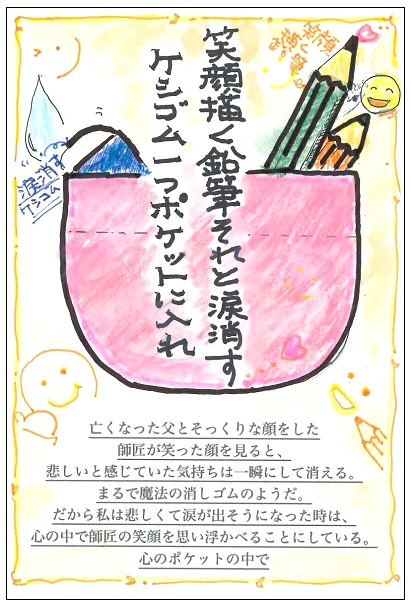 笑顔描く鉛筆それと涙消す
ケシゴム一つポケットに入れ
涙消す
ケシゴム
亡くなった父とそっくりな顔をした
師匠が笑った顔を見ると、
悲しいと感じていた気持ちは一瞬にして消える。
まるで魔法の消しゴムのようだ。
だから私は悲しくて涙が出そうになった時は、
心の中で師匠の笑顔を思い浮かべることにしている。
心のポケットの中で